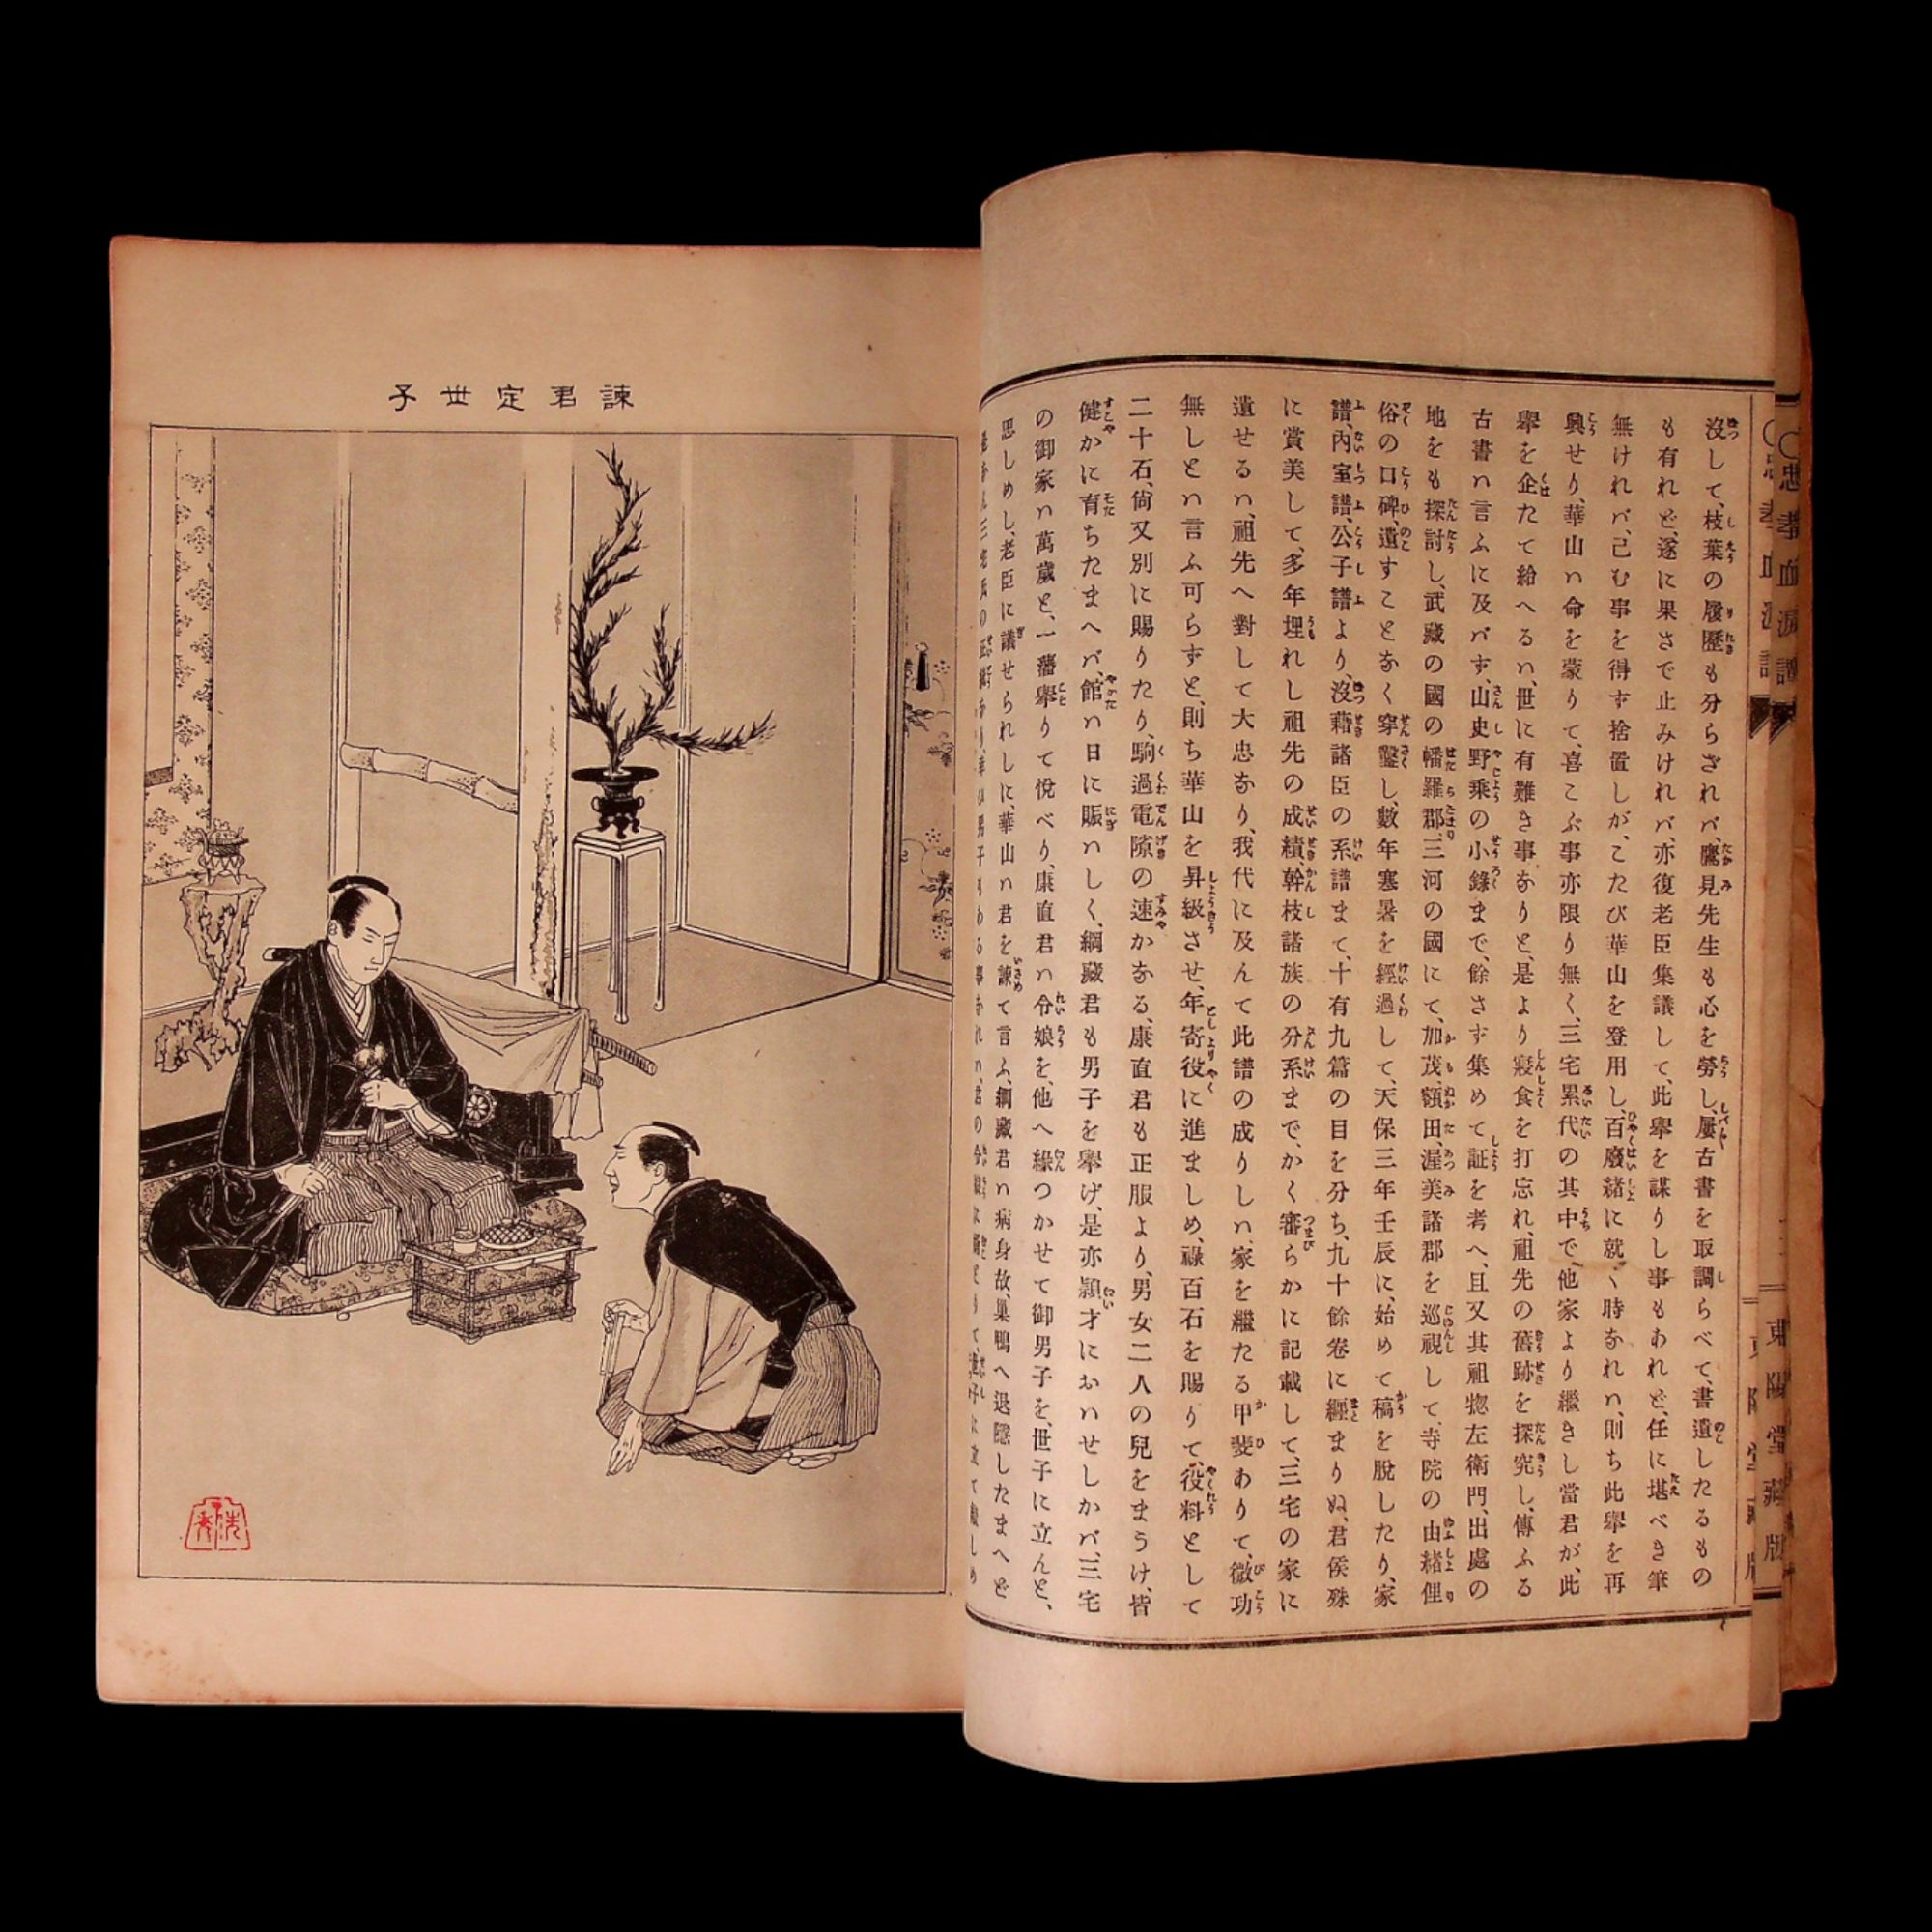 沒して、枝葉の履歷も分らざれバ、鷹見先生も心を勞し、屢古書を取調らべて、書遺したるもの
も有れど、遂に果さで止みけれバ、亦復老臣集議して、此擧を謀りし事もあれど、任に堪べき筆
無けれバ、己む事を得ず捨置しが、こたび華山を登用し、百廢緒に就く時なれハ、則ち此擧を再
興せり、華山ハ命を蒙りて、喜こぶ事亦限り無く、三宅累代の其中で、他家より繼きし當君が、此
擧を企たて給へるハ、世に有難き事なりと、是より寢食を打忘れ、祖先の舊跡を探究し、傳ふる
古書ハ言ふに及バず、山史野乘の小錄まで、餘さず集めて証を考へ、且又其祖惣左衛門、出處の
地をも探討し、武藏の國の幡羅郡、三河の國にて、加茂、額田、渥美諸郡を巡視して、寺院の由緒俚
俗の口碑、遺すことなく穿鑿し、數年寒暑を經過して、天保三年壬辰に、始めて稿を脫したり、家
譜、內室譜、公子譜より、沒藉諸臣の系譜まて、十有九篇の目を分ち、九十餘卷に纒まりぬ、君侯殊
に賞美して、多年埋れし祖先の成績、幹枝諸族の分系まで、かく審らかに記載して、三宅の家に
遺せるハ、祖先へ對して大忠なり、我代に及んて此譜の成りしハ、家を繼たる甲斐ありて、微功
無しとハ言ふ可らずと、則ち華山を昇級させ、年寄役に進ましめ、祿百石を賜りて、役料として
二十石、尙又別に賜りたり、駒過電隙の速かなる、康直君も正服より、男女二人の兒をまうけ、皆
健かに育ちたまへバ、館ハ日に賑ハしく、綱藏君も男子を擧げ、是亦穎才におハせしかバ、三宅
の御家ハ萬歲と、一藩擧りて悅べり、康直君ハ令娘を、他へ緣つかせて御男子を、世子に立んと、
思しめし、老臣に議せられしに、華山ハ君を諫て言ふ、綱藏君ハ病身故、巢鴨へ退隱したまへど
諫君定世子
○忠孝血淚譚
東陽堂藏版